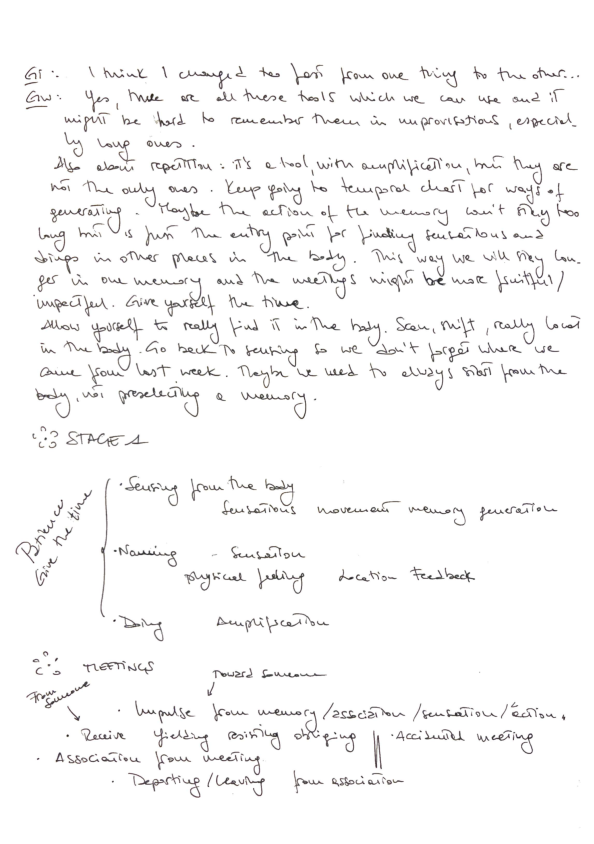 Gi : I think I changed too fast from one thing to the other...
Gw : Yes, there are all these tools which we can use and it
might be hard to remember them in improvisations, especial-
ly long ones.
Also about repetition : it's a tool, with amplification, but they are
not the only ones. Keep going to temporal chart for ways of
generating. Maybe the action of the memory won't stay too
long but is just the entry point for finding sensations and
doings in other places in the body. This way we will stay lon-
ger in one memory and the meetings might be more fruitful/
impactful. Give yourself the time.
Allow yourself to really find it in the body. Scan, shift, really locat
in the body. Go back to sensing so we don't forget where we
came from last week. Maybe we need to always start from the
body, not preselecting a memory.
STAGE 1
Patience
Give the time
· Sensing from the body
Sensations movement memory generation
· Naming - Sensation
physical feeling Location Feedback
· Doing Amplification
MEETINGS
Toward someone
From someone
· Impulse from memory/association/sensation/action.
· Receive yielding resisting obliging · Accidental meeting
· Association from meeting
· Departing/leaving from association